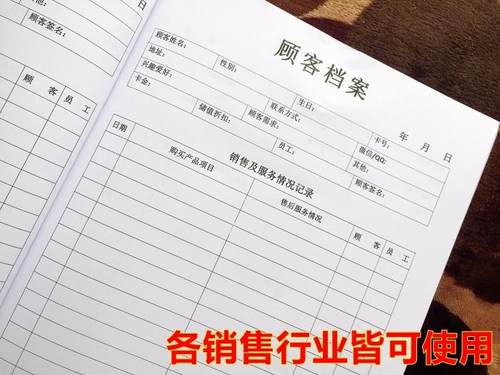 年 月 日
顾客签名：
顾 客 员 工
顾客档案
年 月 日
顾客姓名： 性别： 生日： 卡号：
地址： 联系方式： 微信/QQ：
兴趣爱好： 顾客需求： 其他：
卡金： 储值折扣： 员工： 顾客签名：
销售及服务情况记录
日期 购买产品项目 售后服务情况 顾 客 员 工
各销售行业皆可使用